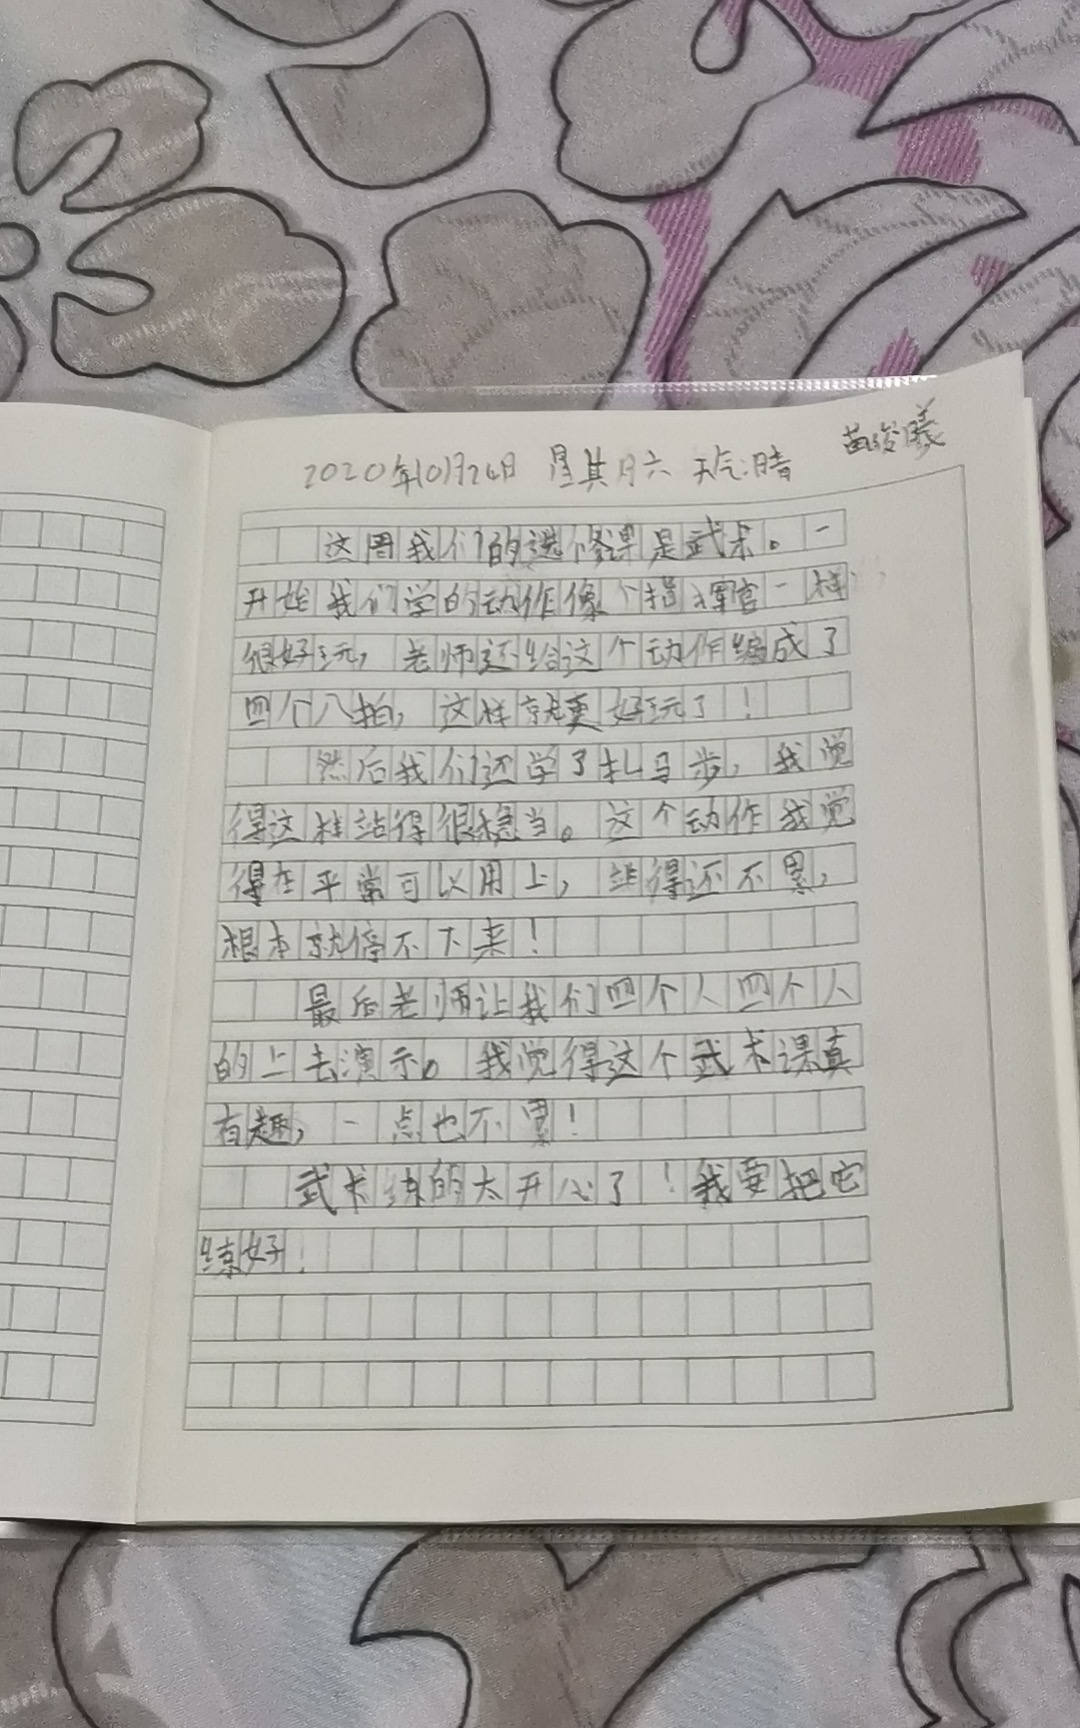 苗骏曦
2020年10月24日 星其月六 天气:晴
这周我们的选修课是武术。一
开始我们学的动作像个指挥官一样,
很好玩,老师还给这个动作编成了
四个八拍,这样就更好玩了!
然后我们还学了扎马步,我觉
得这样站得很稳当。这个动作我觉
得在平常可以用上,站得还不累,
根本就停不下来!
最后老师让我们四个人四个人
的上去演示。我觉得这个武术课真
有趣,一点也不累!
武术练的太开心了!我要把它
练好!